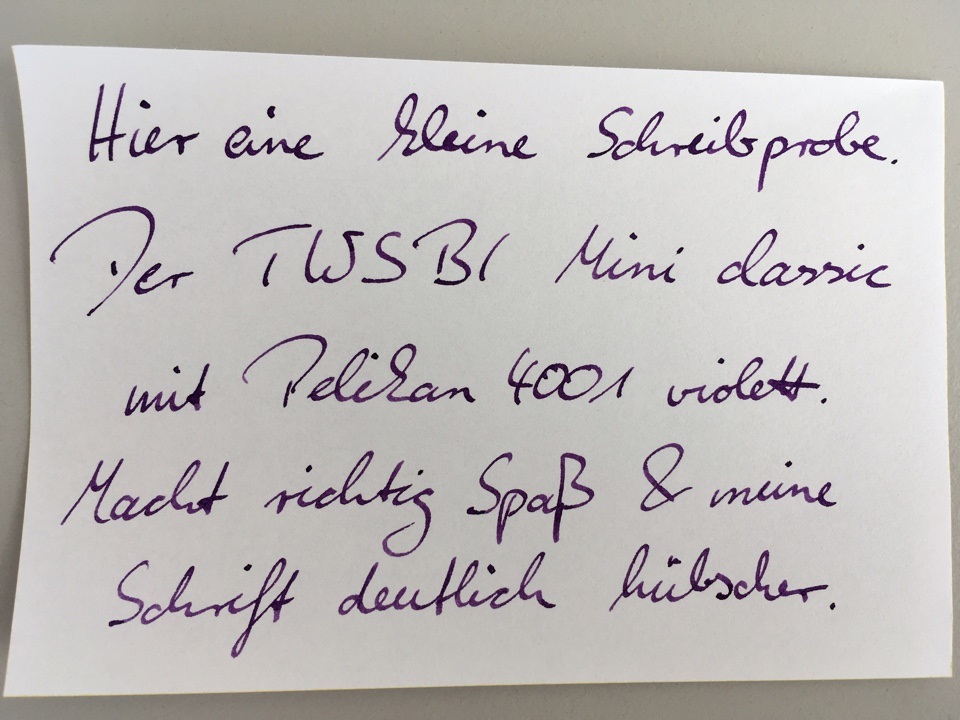 Hier eine kleine Schreibprobe.
Der TWSBI Mini classic
mit Pelikan 4001 violett.
Macht richtig Spaß & meine
Schrift deutlich hübscher.